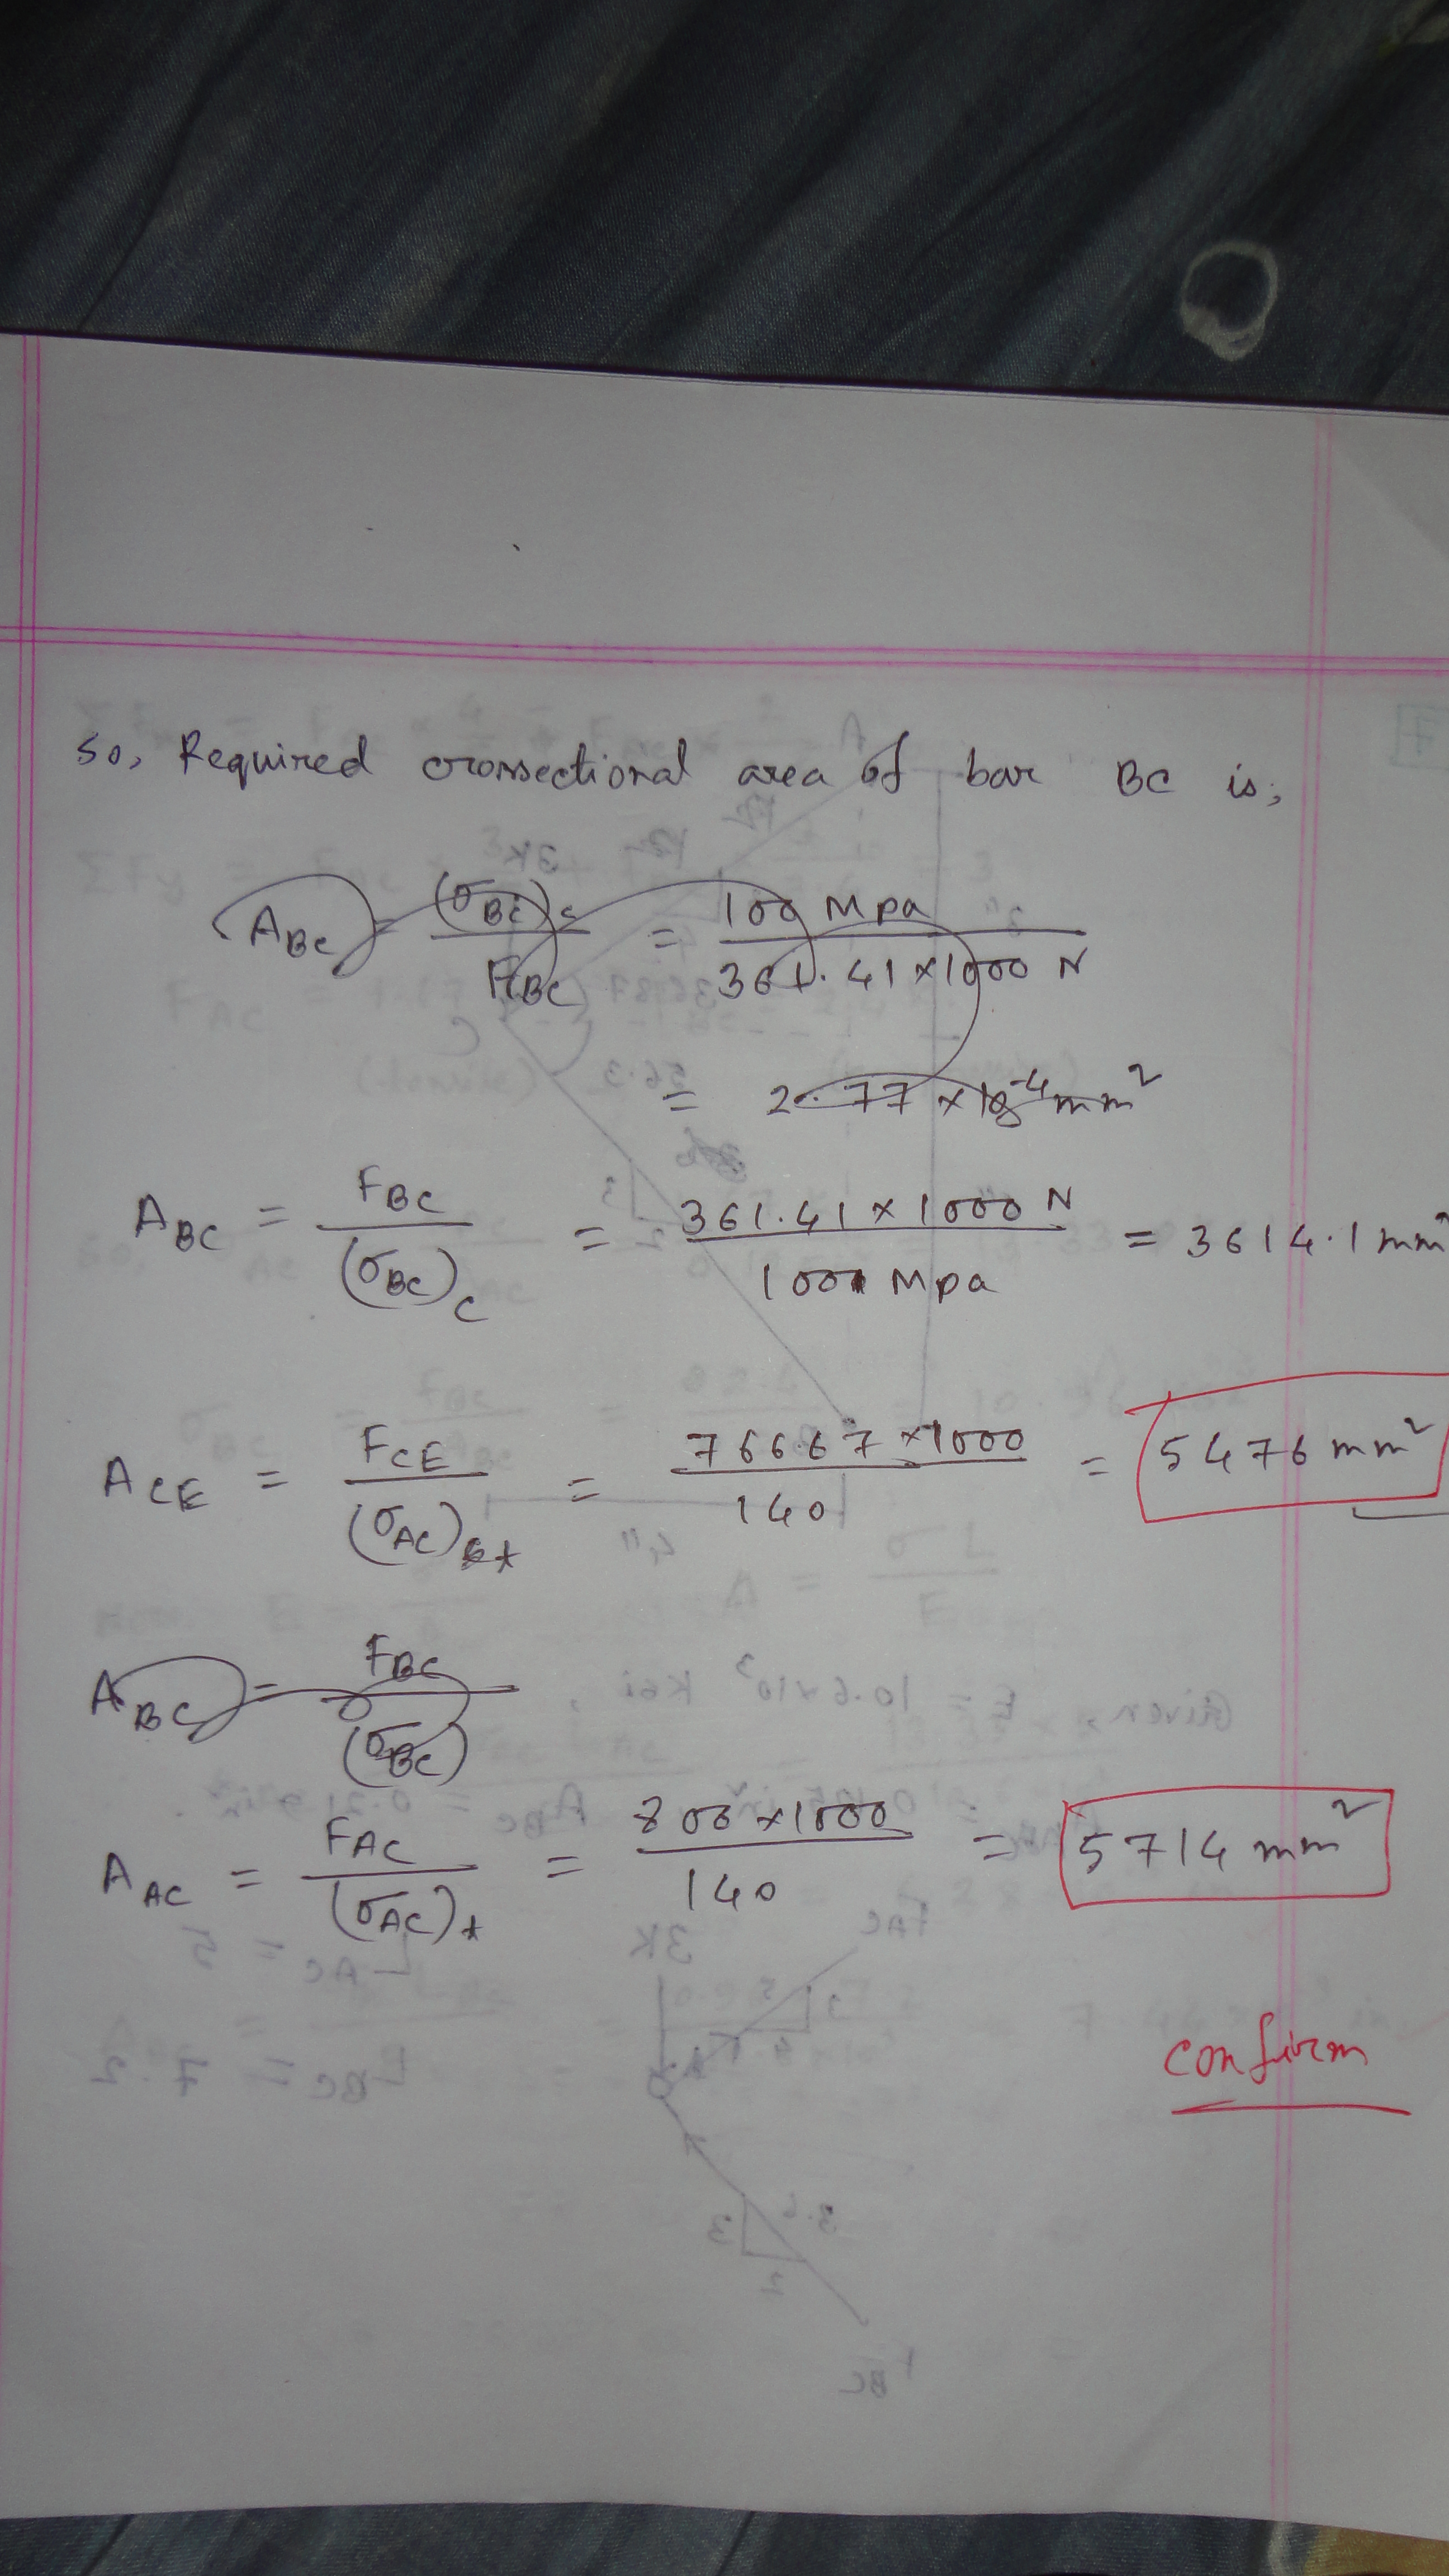 So, Required crossectional area of bar BC is;
A_BC = (σ_BC)_c / F_BC = 100 Mpa / 361.41 × 1000 N
= 2.77 × 10^-4 mm²
A_BC = F_BC / (σ_BC)_c = 361.41 × 1000 N / 100 Mpa = 3614.1 mm²
A_CE = F_CE / (σ_AC)_t = 766.67 × 1000 / 140 = 5476 mm²
A_BC = F_BC / (σ_BC)
A_AC = F_AC / (σ_AC)_t = 800 × 1000 / 140 = 5714 mm²
confirm